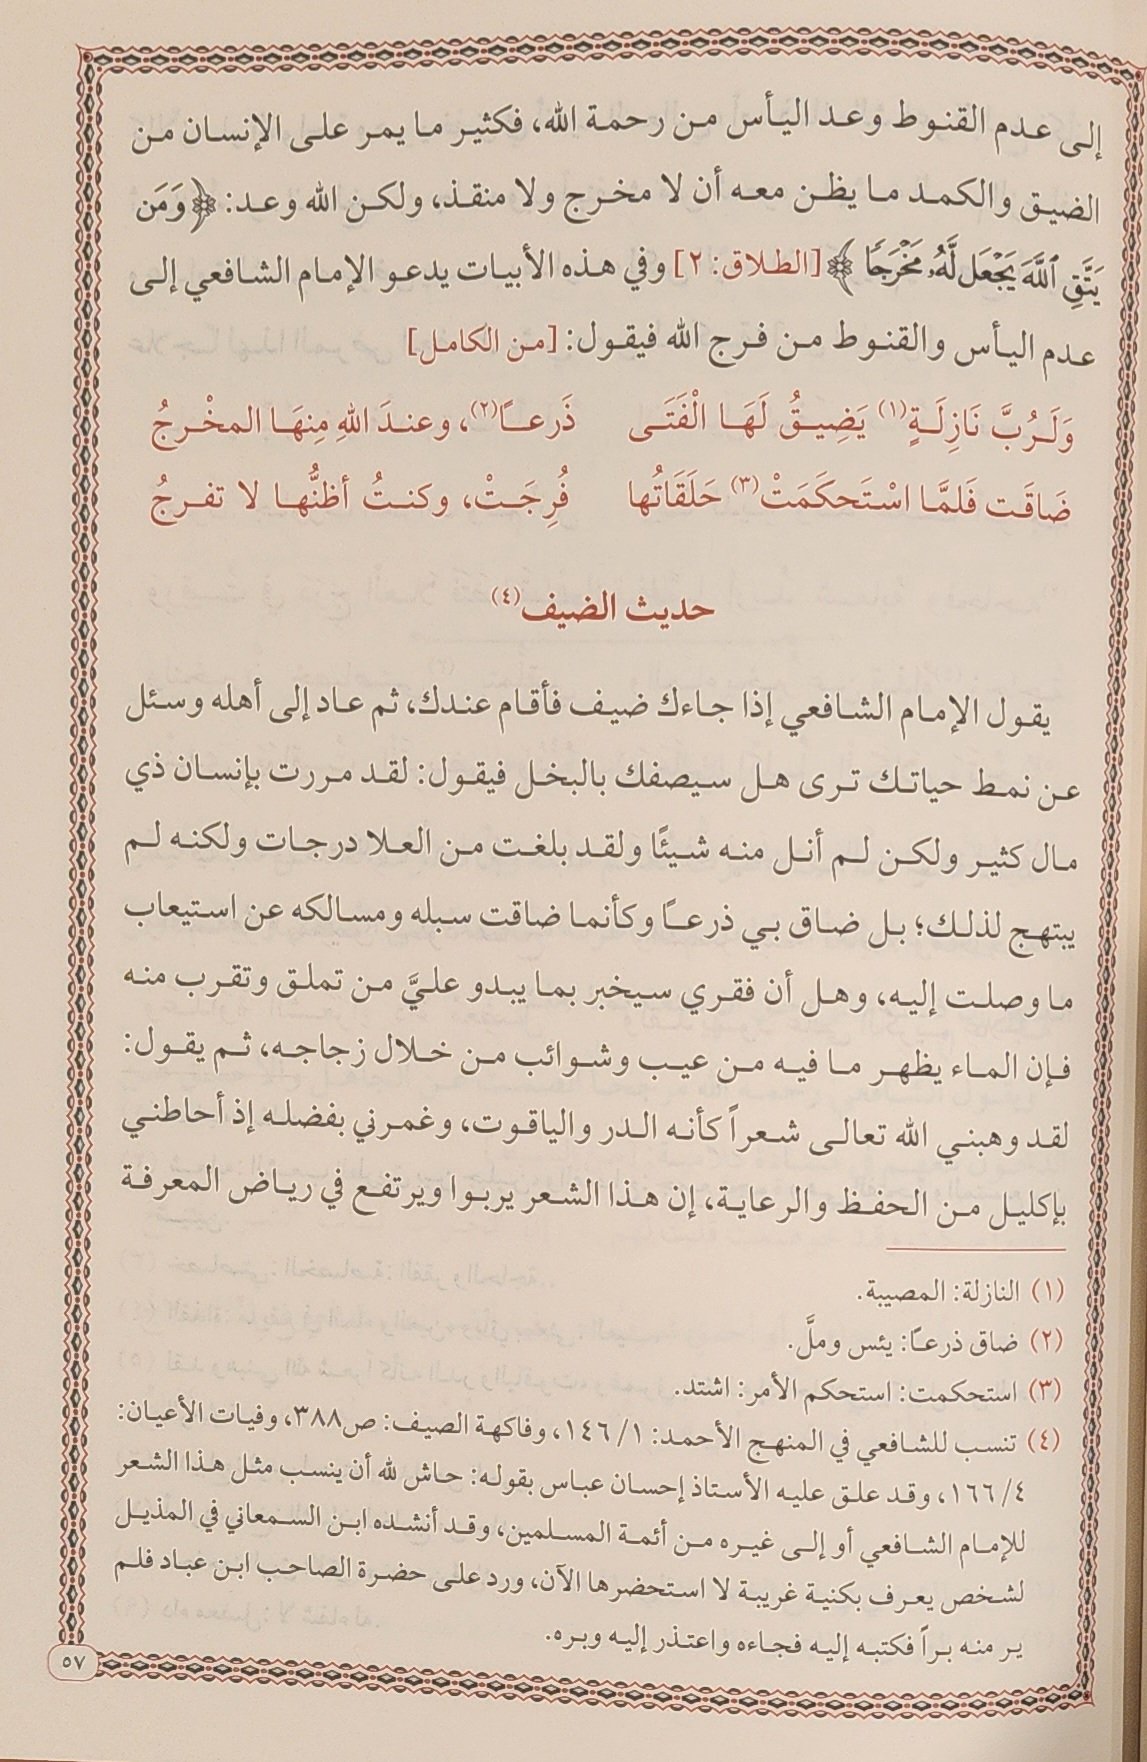 إلى عدم القنوط وعد اليأس من رحمة الله، فكثير ما يمر على الإنسان من
الضيق والكمد ما يظن معه أن لا مخرج ولا منقذ، ولكن الله وعد: ﴿وَمَن
يَتَّقِ ٱللَّهَ يَجْعَل لَّهُۥ مَخْرَجًا﴾ [الطلاق: ٢] وفي هذه الأبيات يدعو الإمام الشافعي إلى
عدم اليأس والقنوط من فرج الله فيقول: [من الكامل]
وَلَرُبَّ نَازِلَةٍ(١) يَضِيقُ لَهَا الْفَتَى ذَرعًا(٢)، وعندَ اللهِ مِنهَا المخْرجُ
ضَاقَت فَلمَّا اسْتَحكَمَتْ(٣) حَلَقَاتُها فُرِجَتْ، وكنتُ أظنُّها لا تفرجُ
حديث الضيف(٤)
يقول الإمام الشافعي إذا جاءك ضيف فأقام عندك، ثم عاد إلى أهله وسئل
عن نمط حياتك ترى هل سيصفك بالبخل فيقول: لقد مررت بإنسان ذي
مال كثير ولكن لم أنل منه شيئًا ولقد بلغت من العلا درجات ولكنه لم
يبتهج لذلك؛ بل ضاق بي ذرعًا وكأنما ضاقت سبله ومسالكه عن استيعاب
ما وصلت إليه، وهل أن فقري سيخبر بما يبدو عليَّ من تملق وتقرب منه
فإن الماء يظهر ما فيه من عيب وشوائب من خلال زجاجه، ثم يقول:
لقد وهبني الله تعالى شعراً كأنه الدر والياقوت، وغمرني بفضله إذ أحاطني
بإكليل من الحفظ والرعاية، إن هذا الشعر يربوا ويرتفع في رياض المعرفة
(١) النازلة: المصيبة.
(٢) ضاق ذرعًا: يئس وملَّ.
(٣) استحكمت: استحكم الأمر: اشتد.
(٤) تنسب للشافعي في المنهج الأحمد: ١/ ١٤٦، وفاكهة الصيف: ص٣٨٨، وفيات الأعيان:
٤/ ١٦٦، وقد علق عليه الأستاذ إحسان عباس بقوله: حاش لله أن ينسب مثل هذا الشعر
للإمام الشافعي أو إلى غيره من أئمة المسلمين، وقد أنشده ابن السمعاني في المذيل
لشخص يعرف بكنية غريبة لا استحضرها الآن، ورد على حضرة الصاحب ابن عباد فلم
ير منه براً فكتبه إليه فجاءه واعتذر إليه وبره.
٥٧